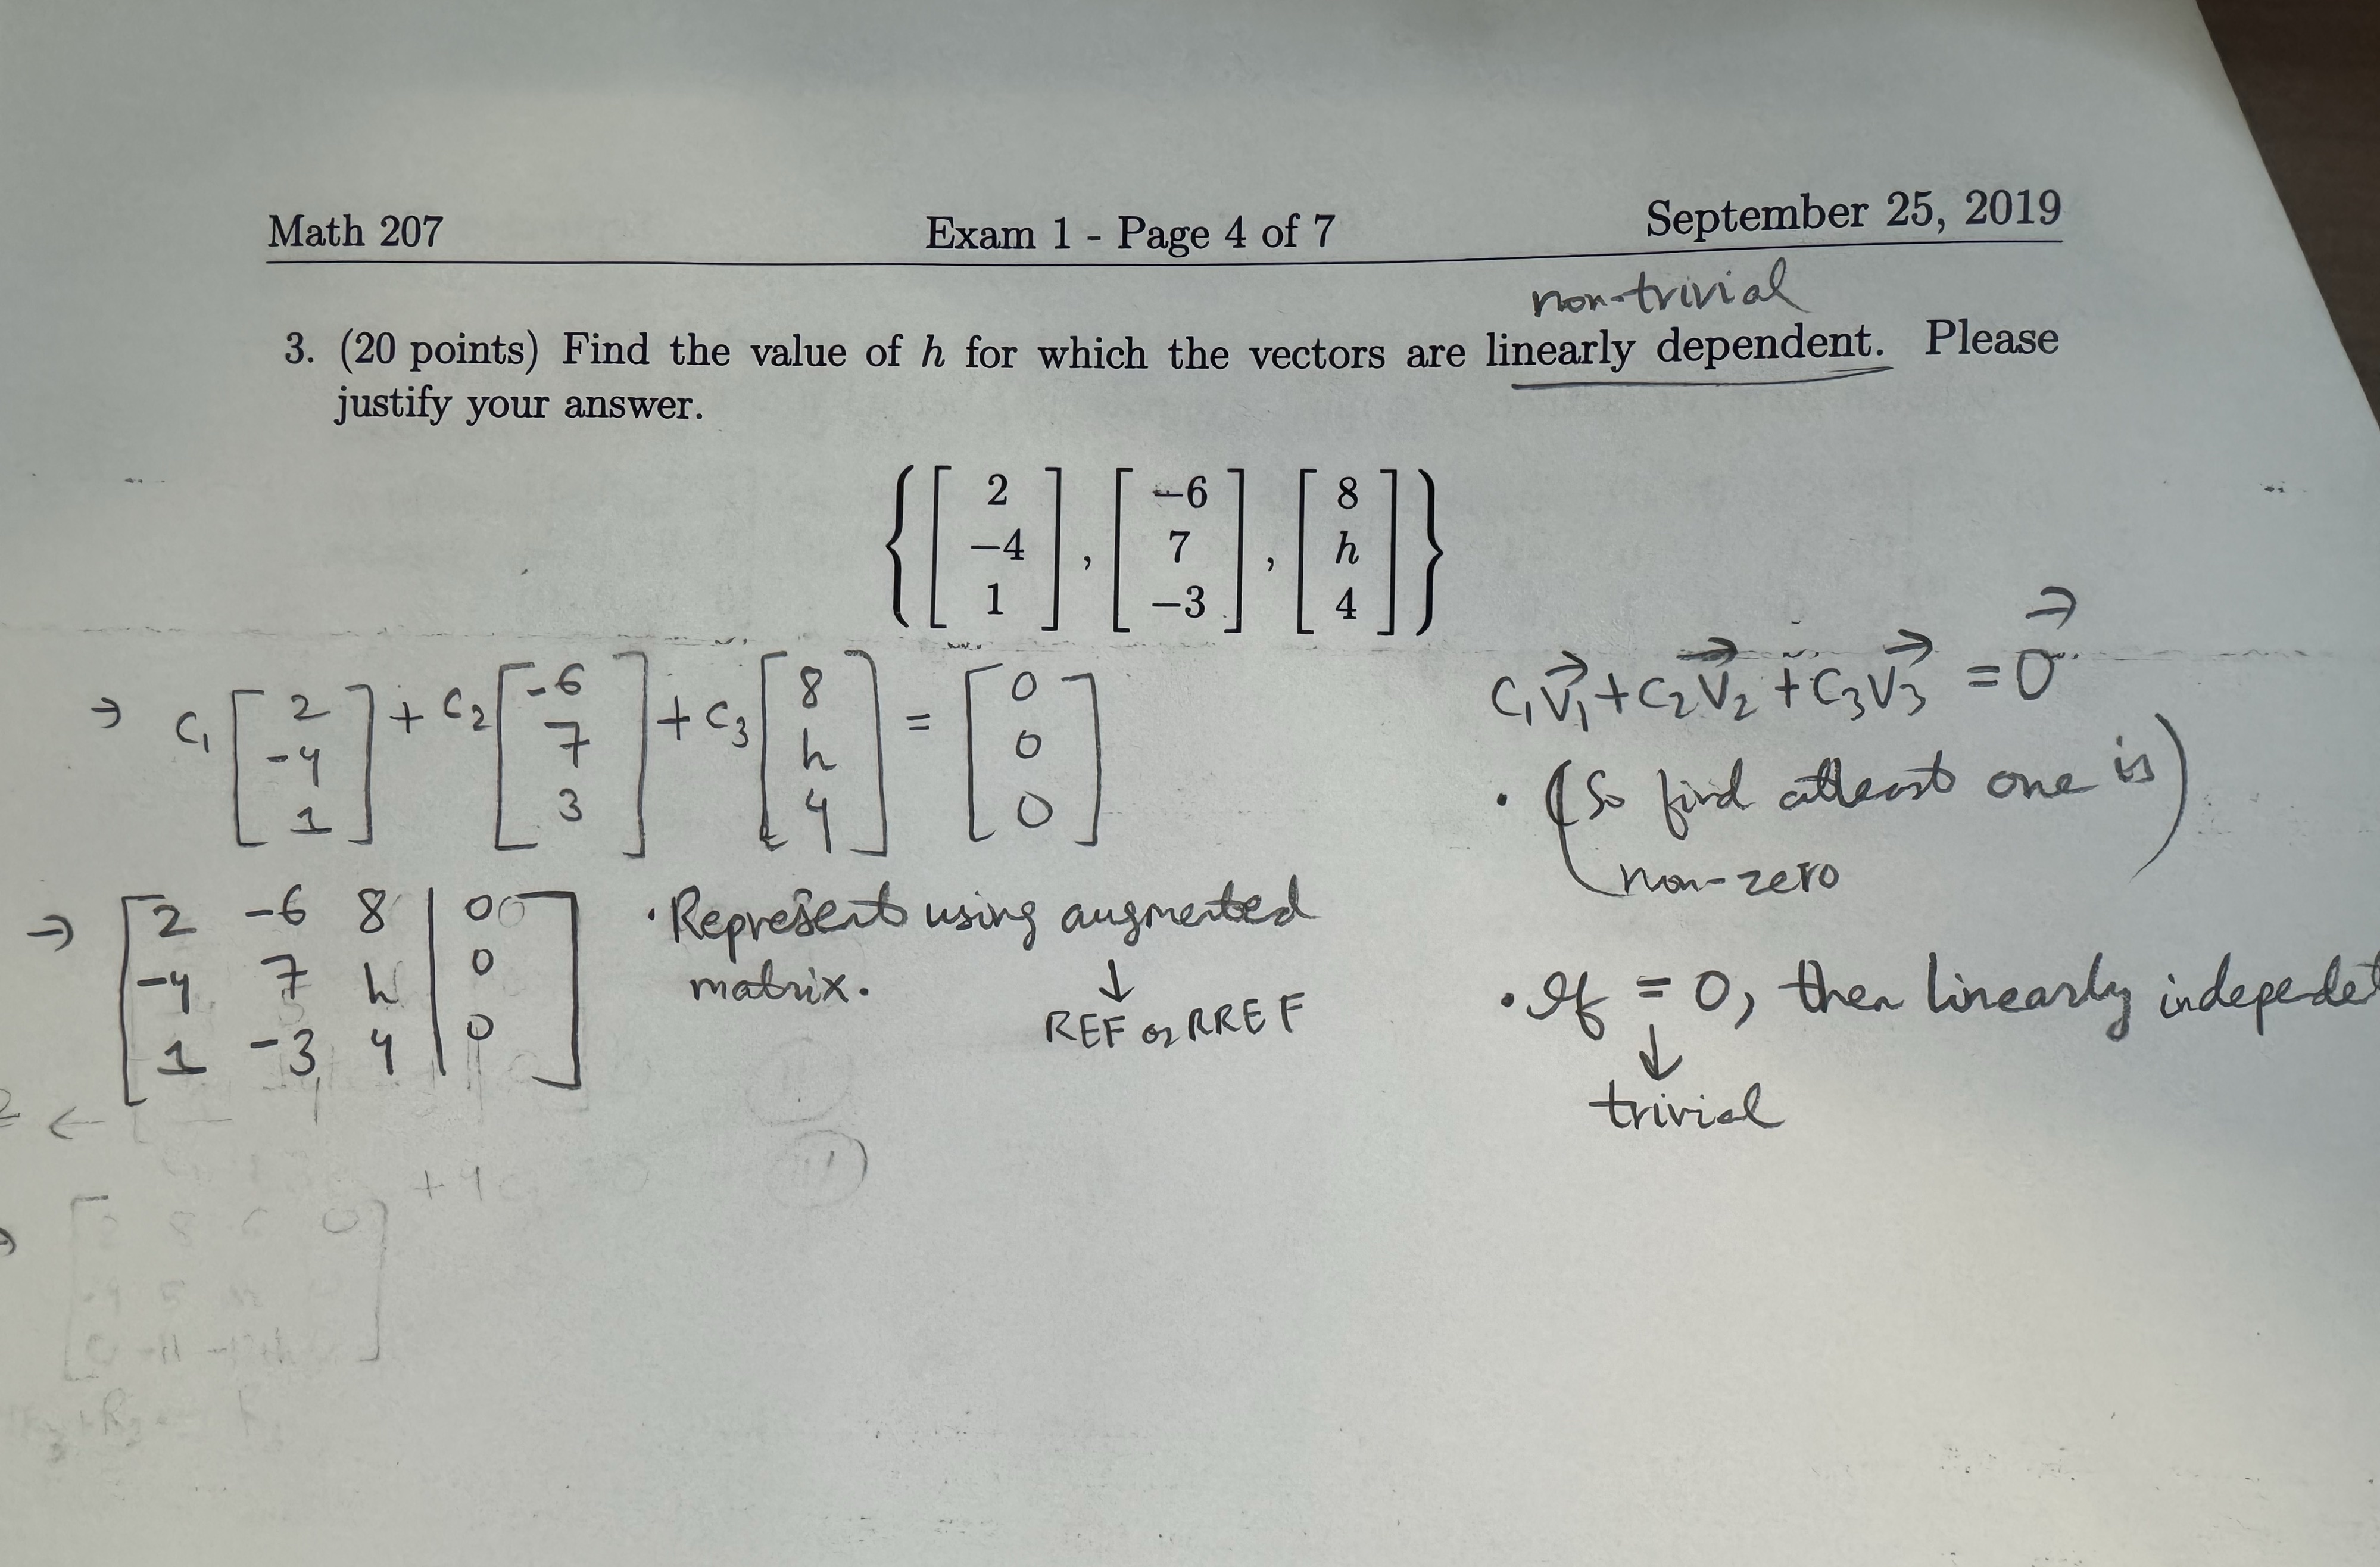 Math 207 Exam 1 - Page 4 of 7 September 25, 2019
non-trivial
3. (20 points) Find the value of h for which the vectors are linearly dependent. Please
justify your answer.
{ [ 2 ] , [ −6 ] , [ 8 ] }
{ [ −4 ] , [ 7 ] , [ h ] }
{ [ 1 ] , [ −3 ] , [ 4 ] }
→ C₁ [ 2 ] + C₂ [ -6 ] + C₃ [ 8 ] = [ 0 ]
[ -4 ] [ 7 ] [ h ] [ 0 ]
[ 1 ] [ 3 ] [ 4 ] [ 0 ]
C₁V₁→ + C₂V₂→ + C₃V₃→ = 0→
• (So find atleast one is)
non-zero
→ [ 2 -6 8 | 0 ]
[ -4 7 h | 0 ]
[ 1 -3 4 | 0 ]
• Represent using augmented
matrix. ↓
REF or RREF
• If = 0, then linearly independet
↓
trivial